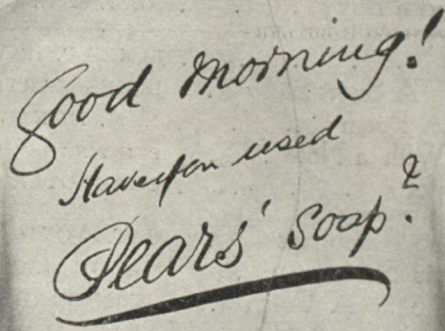 Good morning!
Have you used
Pears' Soap?